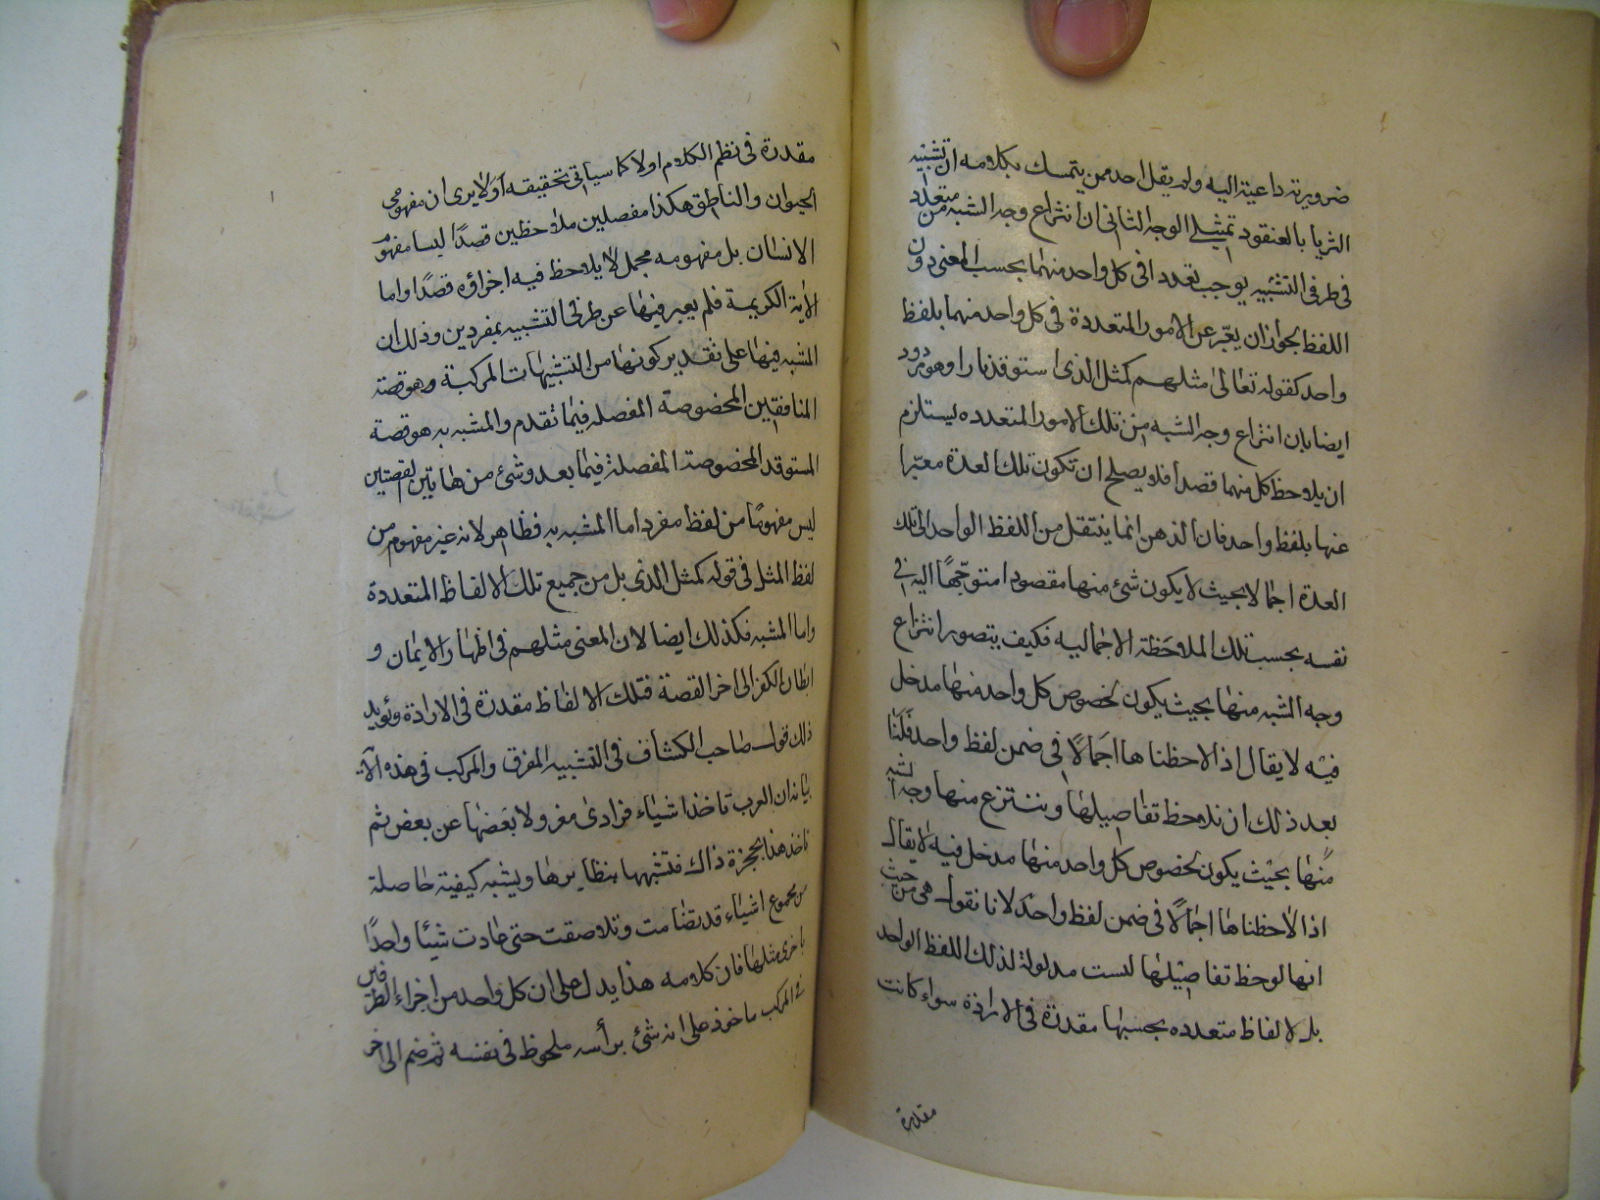 ضرورية داعية اليه ولم يقل احد ممن يتمسك بكلامه ان تشبيه
الثريا بالعنقود تمثيلى الوجه الثانى ان انتزاع وجه الشبه من متعدد
فى طرفى التشبيه يوجب تعددا فى كل واحد منهما بحسب المعنى دون
اللفظ بجواز ان يعبّر عن الامور المتعددة فى كل واحد منهما بلفظ
واحد كقوله تعالى مثلهم كمثل الذى استوقد نارا وهو مردود
ايضا بان انتزاع وجه الشبه من تلك الامور المتعدده يستلزم
ان يلاحظ كل منهما قصدا فلا يصلح ان تكون تلك العدة معبّرا
عنها بلفظ واحد فان الذهن انما ينتقل من اللفظ الواحد الى تلك
العدة اجمالا بحيث لا يكون شئ منها مقصودا متوجّهًا اليه فى
نفسه بحسب تلك الملاحظة الاجماليه فكيف يتصور انتزاع
وجه الشبه منها بحيث يكون لخصوص كل واحد منها مدخل
فيه لا يقال اذا لاحظناها اجمالًا فى ضمن لفظ واحد فلنا
بعد ذلك ان نلاحظ تفاصيلها وننتزع منها وجه الشبه
منها بحيث يكون لخصوص كل واحد منها مدخل فيه لا يقال
اذا لاحظناها اجمالًا فى ضمن لفظ واحد لانا نقول هى من حيث
انها لوحظ تفاصيلها ليست مدلولة لذلك اللفظ الواحد
بل لالفاظ متعدده بحسبها مقدرة فى الارادة سواء كانت
مقدرة
مقدرة فى نظم الكلام اولا كما سياتى تحقيقه أولا يرى ان مفهومى
الحيوان والناطق هكذا مفصلين ملاحظين قصدًا ليسا مفهوم
الانسان بل مفهومه مجمل لا يلاحظ فيه اجزاؤه قصدًا واما
الآية الكريمة فلم يعبر فيها عن طرفى التشبيه بمفردين وذلك ان
المشبه فيها على تقدير كونها من التشبيهات المركبة وهو قصة
المنافقين المخصوصة المفصله فيما تقدم والمشبه به هو قصة
المستوقد المخصوصة المفصلة فيما بعد وشئ من هاتين القصتين
ليس مفهومًا من لفظ مفرد اما المشبه به فظاهر لانه غير مفهوم من
لفظ المثل فى قوله كمثل الذى بل من جميع تلك الالفاظ المتعددة
واما المشبه فكذلك ايضا لان المعنى مثلهم فى اظهار الايمان و
ابطان الكفر الى اخر القصة فتلك الالفاظ مقدرة فى الارادة ويؤيد
ذلك قول صاحب الكشاف فى التشبيه المفرق والمركب فى هذه الآية
بيانه ان العرب تاخذ اشياء فرادى معزولا بعضها عن بعض ثم
تاخذ هذا بحجزة ذاك فتشبهها بنظايرها ويشبه كيفية حاصلة
من مجموع اشياء قد تضامت وتلاصقت حتى عادت شيئا واحدًا
باخرى مثلها فان كلامه هذا يدل على ان كل واحد من اجزاء الطرفين
فى المركب ماخوذ على انه شئ برأسه ملحوظ فى نفسه ثم ضم الى اخر